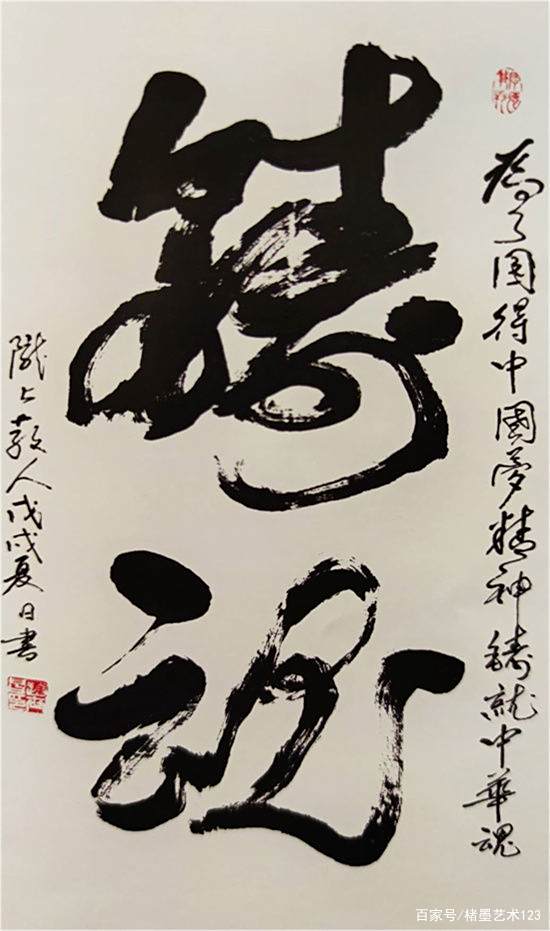 为了圆得中國梦精神鑄就中华魂
鑄魂
隴上散人戊戌夏日書
百家号/楮墨艺术123